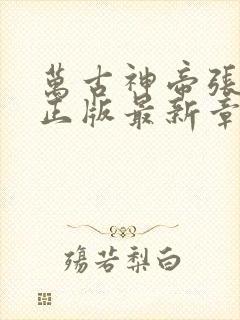 萬古神帝張
正版最新章
殇若梨白